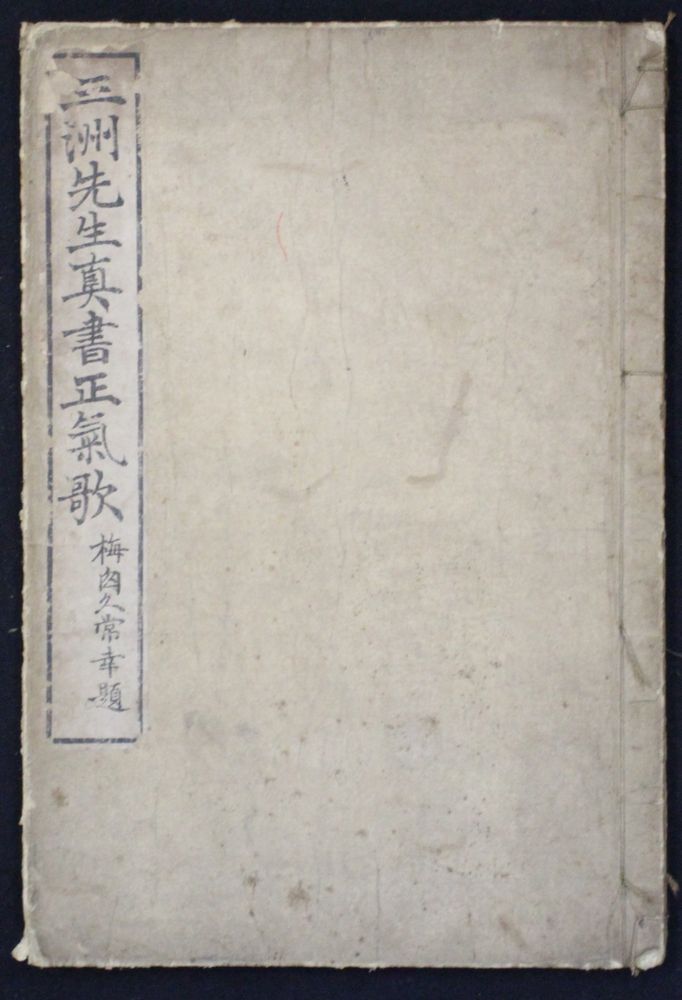 三洲先生真書正氣歌
梅内久常幸題